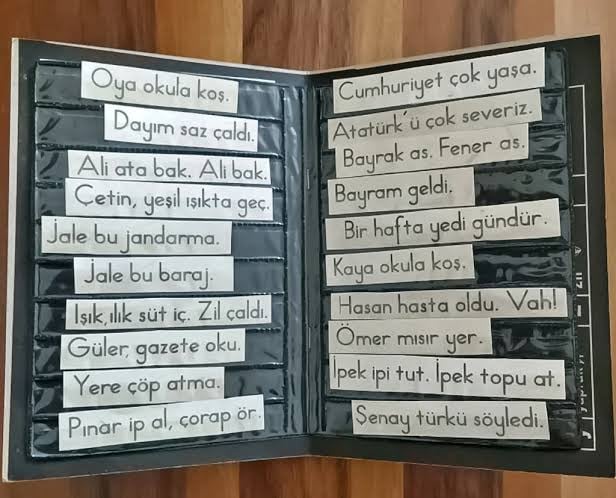 Oya okula koş.
Dayım saz çaldı.
Ali ata bak. Ali bak.
Çetin, yeşil ışıkta geç.
Jale bu jandarma.
Jale bu baraj.
Işık, ılık süt iç. Zil çaldı.
Güler, gazete oku.
Yere çöp atma.
Pınar ip al, çorap ör.
Cumhuriyet çok yaşa.
Atatürk'ü çok severiz.
Bayrak as. Fener as.
Bayram geldi.
Bir hafta yedi gündür.
Kaya okula koş.
Hasan hasta oldu. Vah!
Ömer mısır yer.
İpek ipi tut. İpek topu at.
Şenay türkü söyledi.